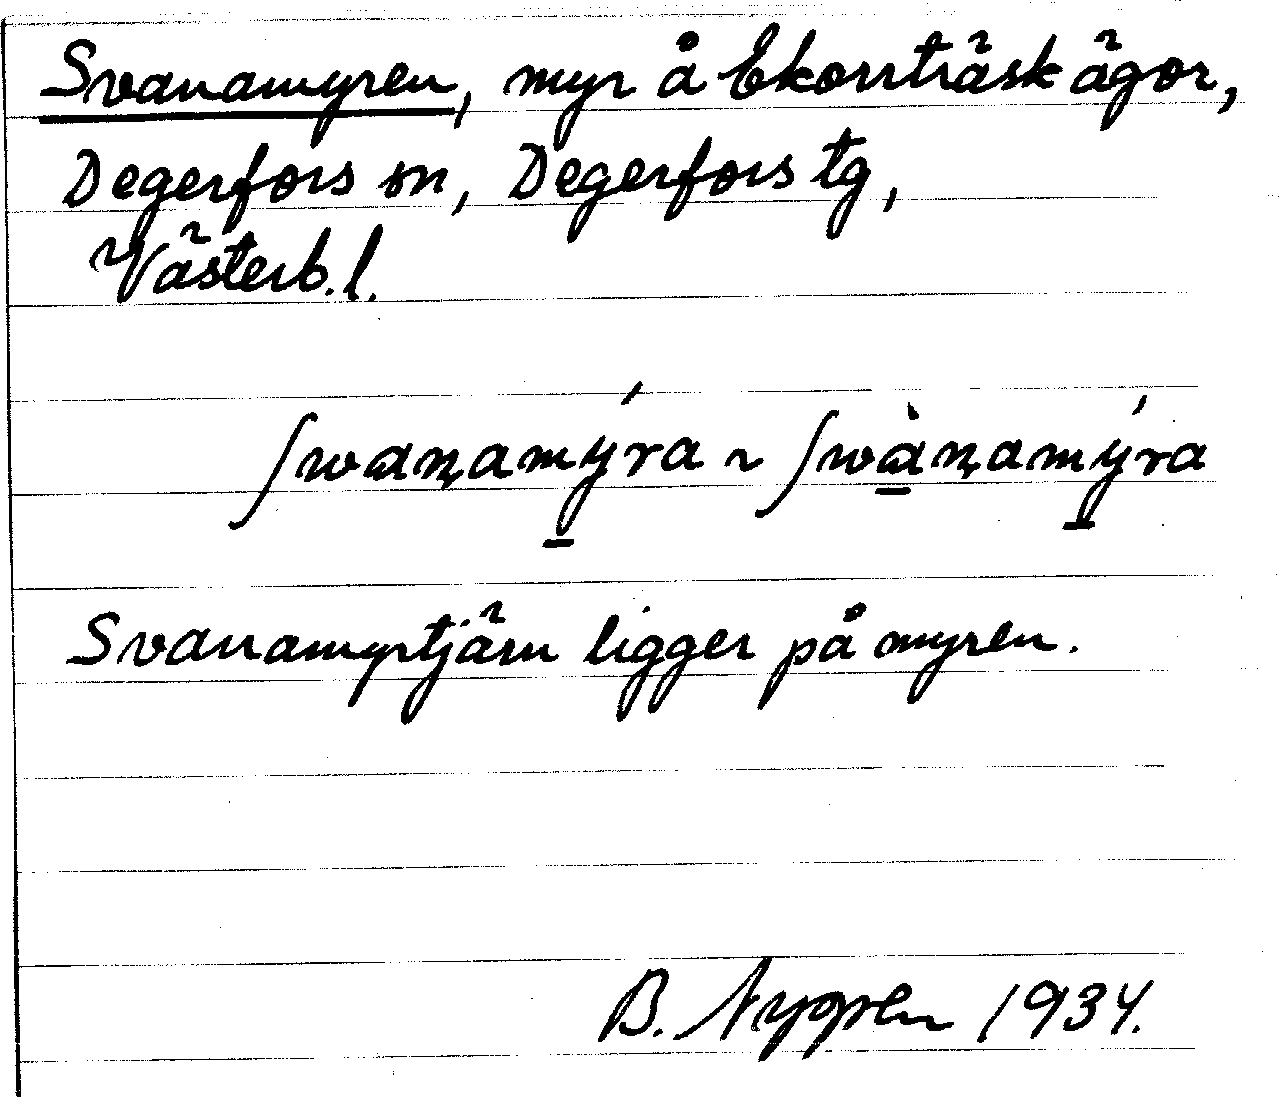 Svanamyren, myr å Ekorrträsk ägor,
Degerfors sn, Degerfors tg,
Västerb. l.
ʃwaṇamýra ~ ʃwàṇamýra
Svanamyrtjärn ligger på myren.
B. Nygren 1934.